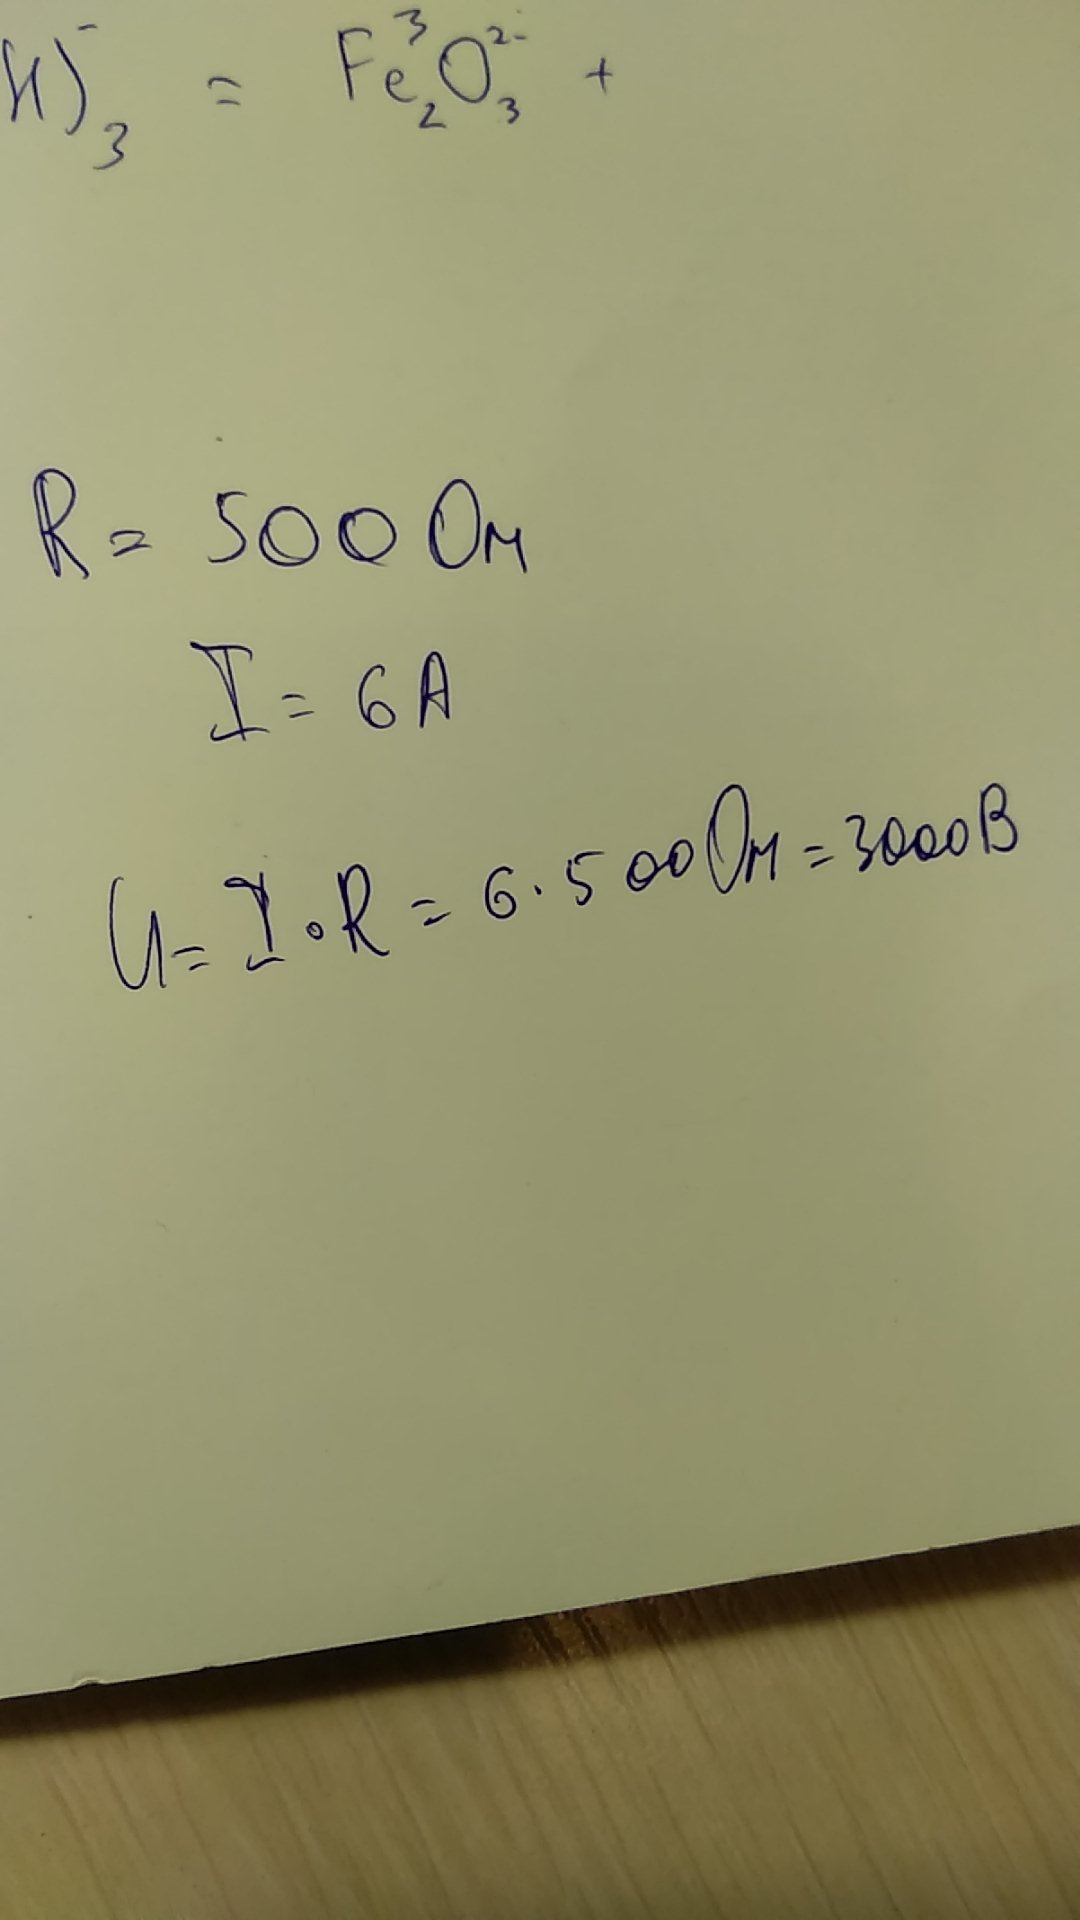 H)₃⁻ = Fe₂³O₃²⁻ +
R = 500 Ом
I = 6 А
U = I · R = 6 · 500 Ом = 3000 В